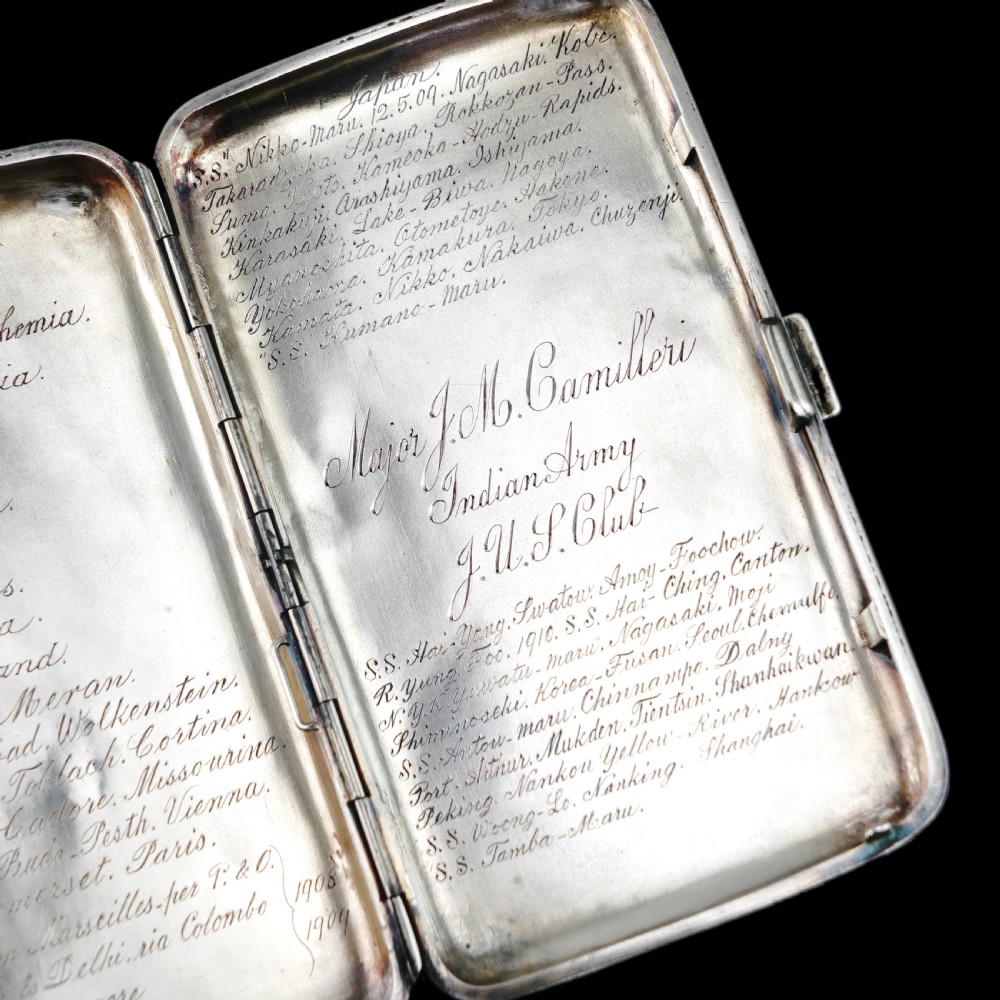 hemia.
ia.
s.
a.
and.
Meran.
ad. Wolkenstein.
Toblach. Cortina.
Cadore. Missourina.
Buda-Pesth. Vienna.
merset. Paris.
Marseilles-per P. & O.
to Delhi. via Colombo
1908
1909
Japan.
"S.S." Nikko-Maru. 12.5.09. Nagasaki. Kobe.
Takaradzuka. Shioya. Rokkozan-Pass.
Suma. Kioto. Kameoka-Hodzu-Rapids.
Kinkakuji. Arashiyama. Ishiyama.
Karasaki. Lake-Biwa. Nagoya.
Myanoshita. Otometoge. Hakone.
Yokohama. Kamakura. Tokyo.
Kamata. Nikko. Nakaiwa. Chuzenji.
"S.S. Kumano-Maru.
Major J.M. Camilleri
Indian Army
J.U.S. Club
S.S. Hai-Yang. Swatow. Amoy-Foochow.
R. Yung-Foo. 1910. S.S. Hai-Ching. Canton.
N.Y.K. maru. Nagasaki. Moji
Shiminoseki. Korea-Fusan. Seoul. Chemulfo.
S.S. Antow-maru. Chinnampo. Dalny
Port. Arthur. Mukden. Tientsin. Shanhaikwan.
Peking. Nankou Yellow-River. Hankow
S.S. Woong-Lo. Nanking. Shanghai.
"S.S. Tamba-Maru.